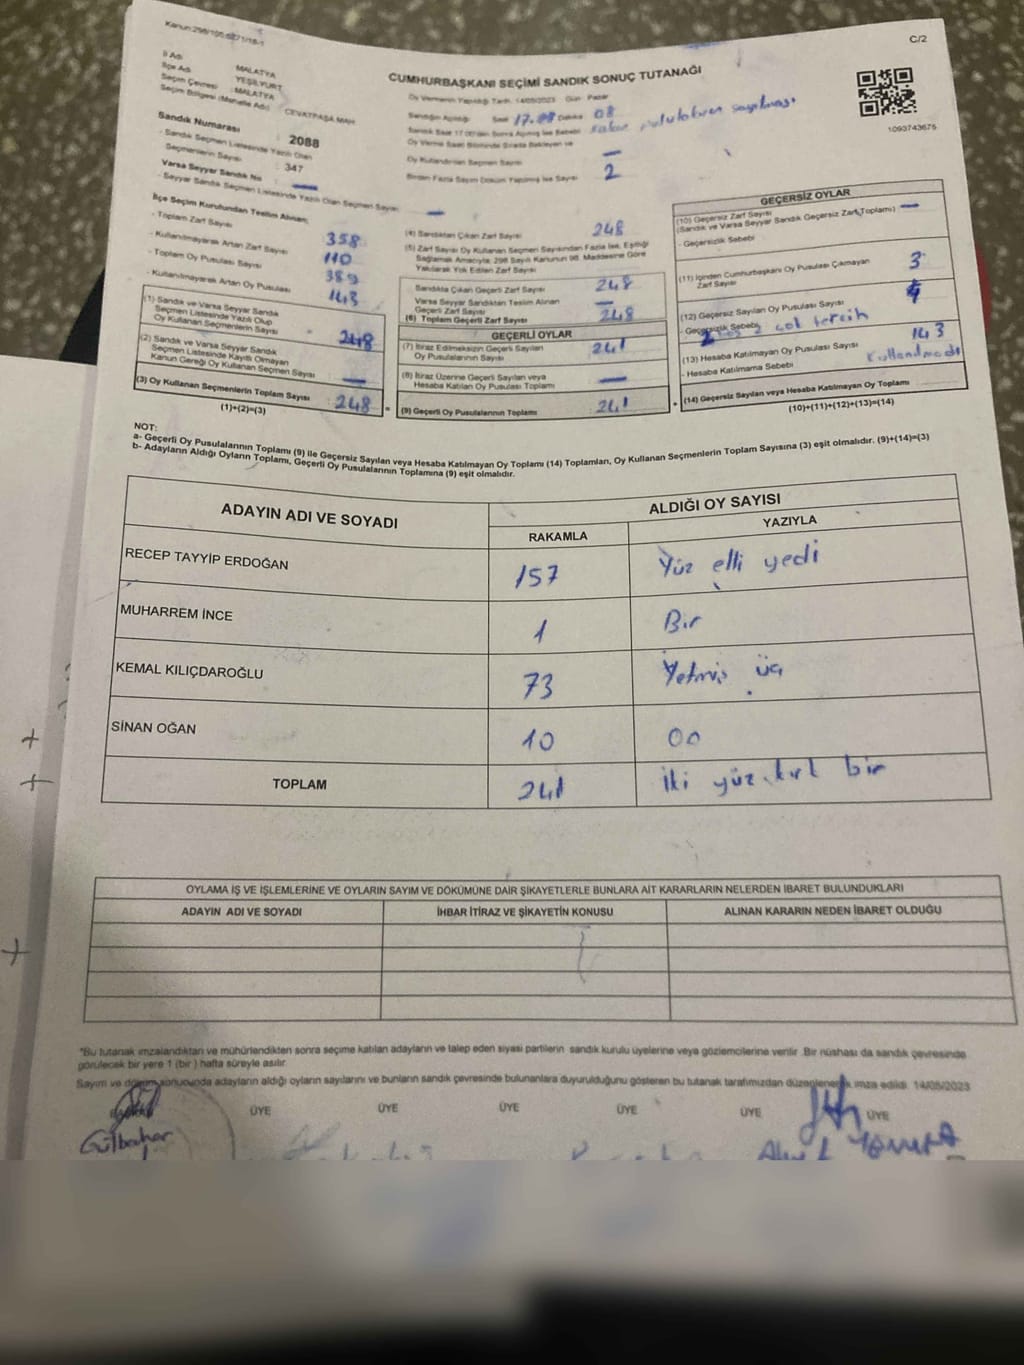 Kanun:298/105;6271/18-1
C/2
CUMHURBAŞKANI SEÇİMİ SANDIK SONUÇ TUTANAĞI
İl Adı MALATYA
İlçe Adı YEŞİLYURT
Seçim Çevresi : MALATYA
Seçim Bölgesi (Mahalle Adı) : CEVATPAŞA MAH
Sandık Numarası : 2088
- Sandık Seçmen Listesinde Yazılı Olan
Seçmenlerin Sayısı : 347
Varsa Seyyar Sandık No :
- Seyyar Sandık Seçmen Listesinde Yazılı Olan Seçmen Sayısı
Oy Vermenin Yapıldığı Tarih: 14/05/2023 Gün: Pazar
Sandığın Açıldığı Saat 17.08 Dakika 08
Sandık Saat 17.00'den Sonra Açılmış İse Sebebi
Oy Verme Saati Bitiminde Sırada Bekleyen ve
Oy Kullandırılan Seçmen Sayısı —
Birden Fazla Sayım Döküm Yapılmış İse Sayısı 2
1093743675
İlçe Seçim Kurulundan Teslim Alınan;
- Toplam Zarf Sayısı 358
- Kullanılmayarak Artan Zarf Sayısı 110
- Toplam Oy Pusulası Sayısı 389
- Kullanılmayarak Artan Oy Pusulası 143
(1) Sandık ve Varsa Seyyar Sandık
Seçmen Listesinde Yazılı Olup
Oy Kullanan Seçmenlerin Sayısı 248
(2) Sandık ve Varsa Seyyar Sandık
Seçmen Listesinde Kayıtlı Olmayan
Kanun Gereği Oy Kullanan Seçmen Sayısı —
(3) Oy Kullanan Seçmenlerin Toplam Sayısı : 248
(1)+(2)=(3)
(4) Sandıktan Çıkan Zarf Sayısı 248
(5) Zarf Sayısı Oy Kullanan Seçmen Sayısından Fazla İse, Eşitliği
Sağlamak Amacıyla, 298 Sayılı Kanunun 98. Maddesine Göre
Yakılarak Yok Edilen Zarf Sayısı
Sandıkta Çıkan Geçerli Zarf Sayısı 248
Varsa Seyyar Sandıktan Teslim Alınan
Geçerli Zarf Sayısı —
(6) Toplam Geçerli Zarf Sayısı 248
GEÇERLİ OYLAR
(7) İtiraz Edilmeksizin Geçerli Sayılan
Oy Pusulalarının Sayısı 241
(8) İtiraz Üzerine Geçerli Sayılan veya
Hesaba Katılan Oy Pusulası Toplamı —
(9) Geçerli Oy Pusulalarının Toplamı 241
GEÇERSİZ OYLAR
(10) Geçersiz Zarf Sayısı
(Sandık ve Varsa Seyyar Sandık Geçersiz Zarf Toplamı) —
- Geçersizlik Sebebi
(11) İçinden Cumhurbaşkanı Oy Pusulası Çıkmayan
Zarf Sayısı 3
(12) Geçersiz Sayılan Oy Pusulası Sayısı
- Geçersizlik Sebebi tercih
(13) Hesaba Katılmayan Oy Pusulası Sayısı 143
- Hesaba Katılmama Sebebi Kullanılmadı
(14) Geçersiz Sayılan veya Hesaba Katılmayan Oy Toplamı
(10)+(11)+(12)+(13)=(14)
NOT:
a- Geçerli Oy Pusulalarının Toplamı (9) ile Geçersiz Sayılan veya Hesaba Katılmayan Oy Toplamı (14) Toplamları, Oy Kullanan Seçmenlerin Toplam Sayısına (3) eşit olmalıdır. (9)+(14)=(3)
b- Adayların Aldığı Oyların Toplamı, Geçerli Oy Pusulalarının Toplamına (9) eşit olmalıdır.
ADAYIN ADI VE SOYADI ALDIĞI OY SAYISI
RAKAMLA YAZIYLA
RECEP TAYYİP ERDOĞAN 157 Yüz elli yedi
MUHARREM İNCE 1 Bir
KEMAL KILIÇDAROĞLU 73 Yetmiş üç
SİNAN OĞAN 10 On
TOPLAM 241 İki yüz kırk bir
OYLAMA İŞ VE İŞLEMLERİNE VE OYLARIN SAYIM VE DÖKÜMÜNE DAİR ŞİKAYETLERLE BUNLARA AİT KARARLARIN NELERDEN İBARET BULUNDUKLARI
ADAYIN ADI VE SOYADI İHBAR İTİRAZ VE ŞİKAYETİN KONUSU ALINAN KARARIN NEDEN İBARET OLDUĞU
*Bu tutanak imzalandıktan ve mühürlendikten sonra seçime katılan adayların ve talep eden siyasi partilerin sandık kurulu üyelerine veya gözlemcilerine verilir. Bir nüshası da sandık çevresinde
görülecek bir yere 1 (bir) hafta süreyle asılır.
Sayım ve döküm sonucunda adayların aldığı oyların sayılarını ve bunların sandık çevresinde bulunanlara duyurulduğunu gösteren bu tutanak tarafımızdan düzenlenerek imza edildi. 14/05/2023
ÜYE ÜYE ÜYE ÜYE ÜYE ÜYE
Gülbahar